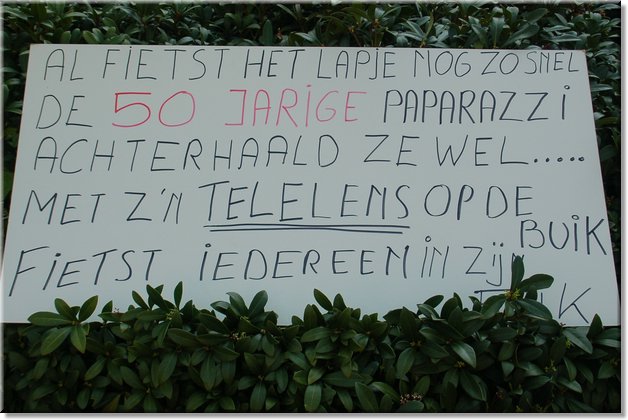 AL FIETST HET LAPJE NOG ZO SNEL
DE 50 JARIGE PAPARAZZI
ACHTERHAALD ZE WEL.....
MET Z'N TELELENS OP DE BUIK
FIETST IEDEREEN IN ZIJN